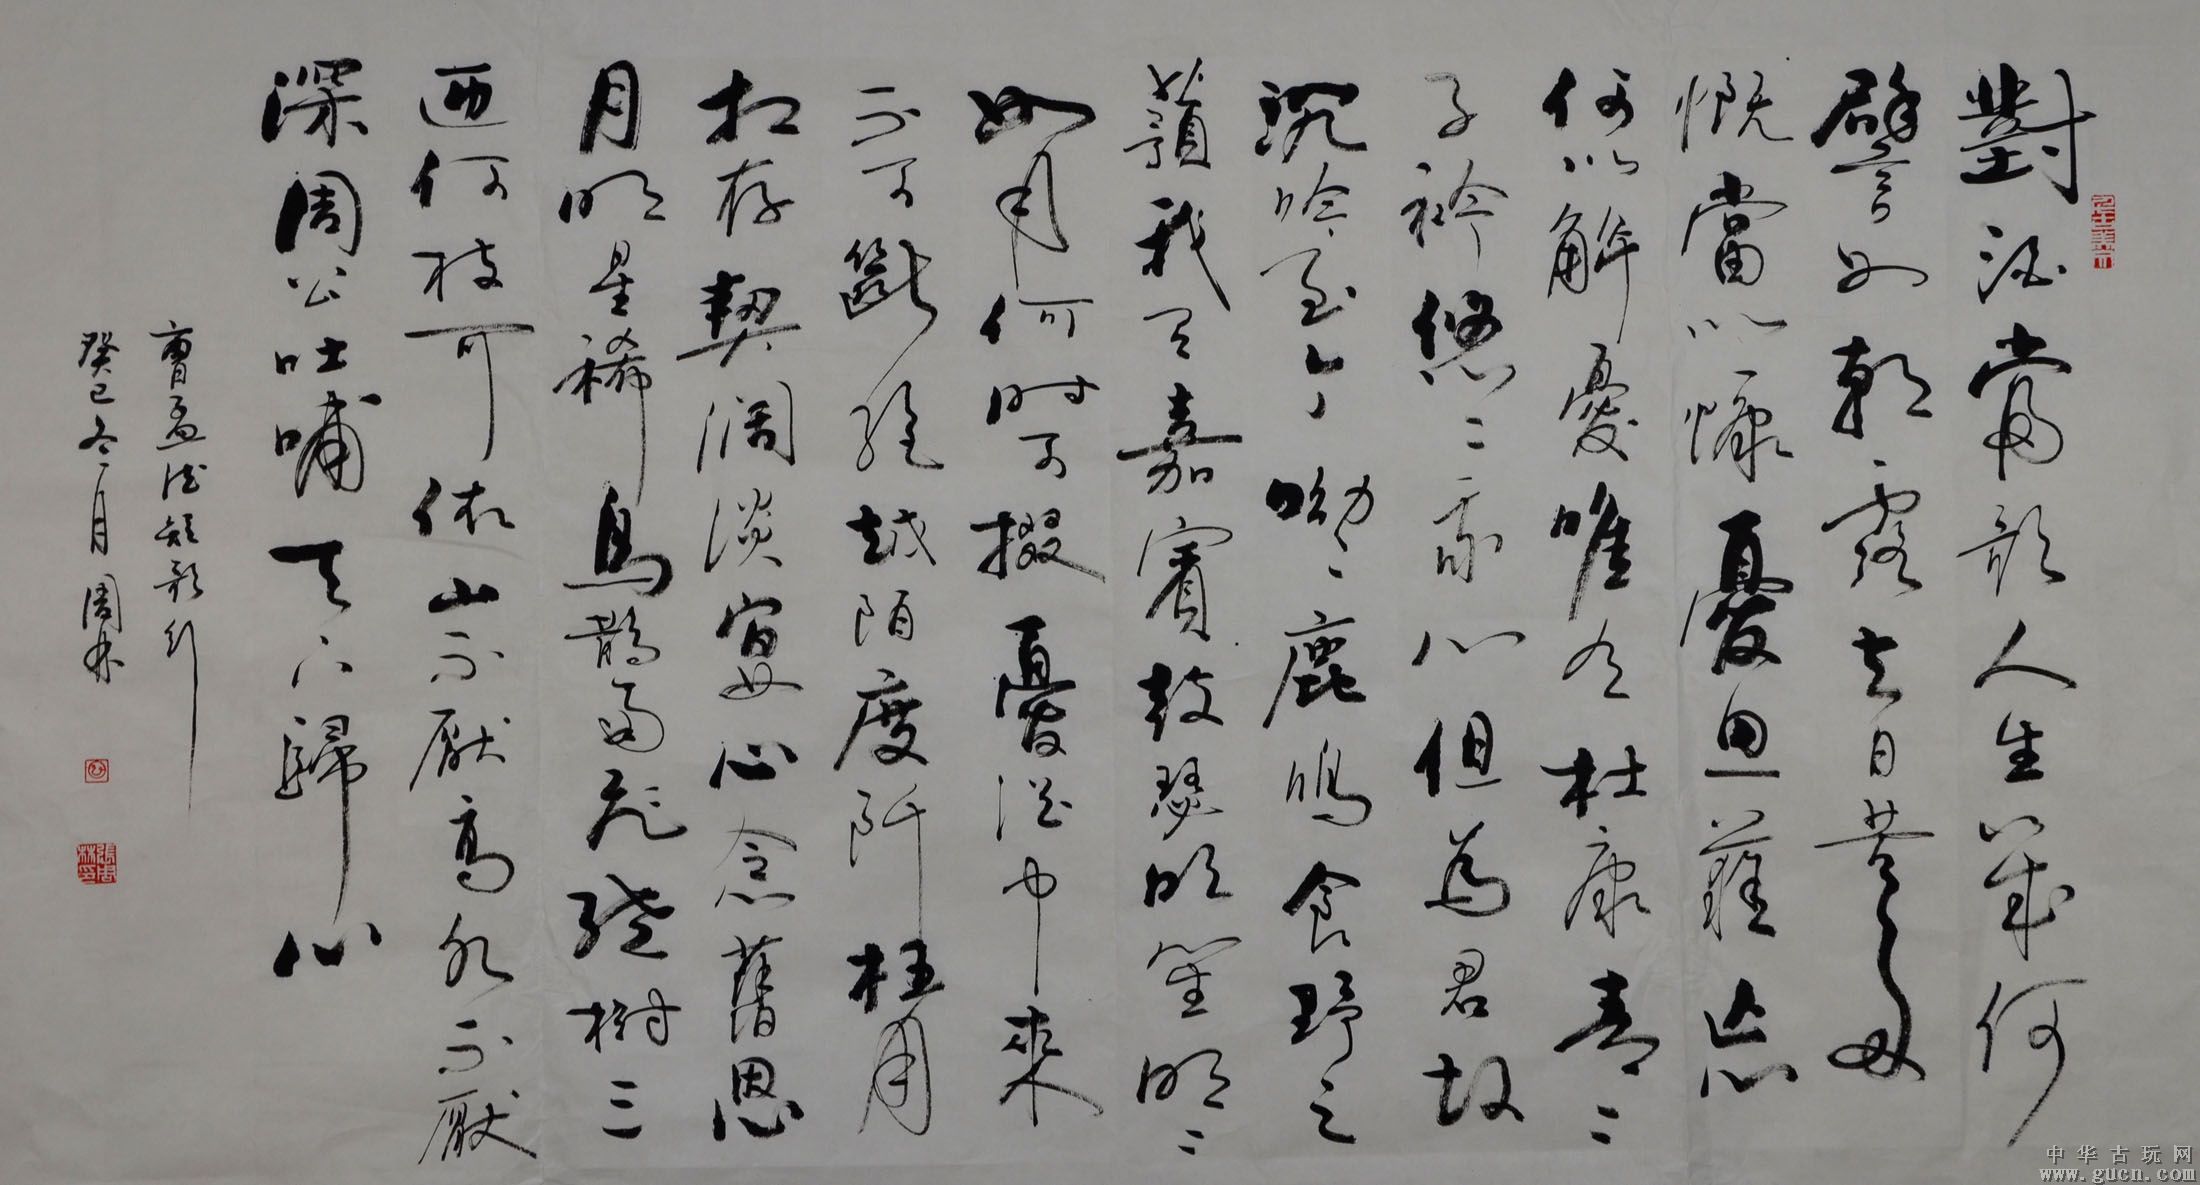 對酒當歌人生幾何
譬如朝露去日苦多
慨當以慷憂思難忘
何以解憂唯有杜康青〻
子衿悠〻我心但為君故
沉吟至今呦〻鹿鳴食野之
蘋我有嘉賓鼓瑟吹笙明〻
如月何時可掇憂從中來
不可斷絕越陌度阡枉用
相存契闊談宴心念舊恩
月明星稀烏鵲南飛繞樹三
匝何枝可依山不厭高水不厭
深周公吐哺天下歸心
曹孟德短歌行
癸巳冬月周林
張周林印
中华古玩网
www.gucn.com